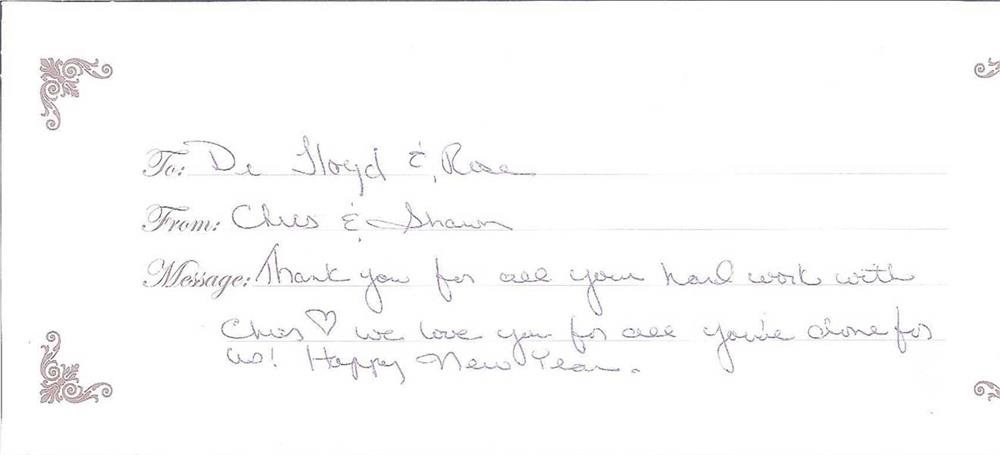 To: Dr Lloyd & Rose
From: Chris & Shawn
Message: Thank you for all your hard work with
Chris ♡ we love you for all you've done for
us! Happy New Year.